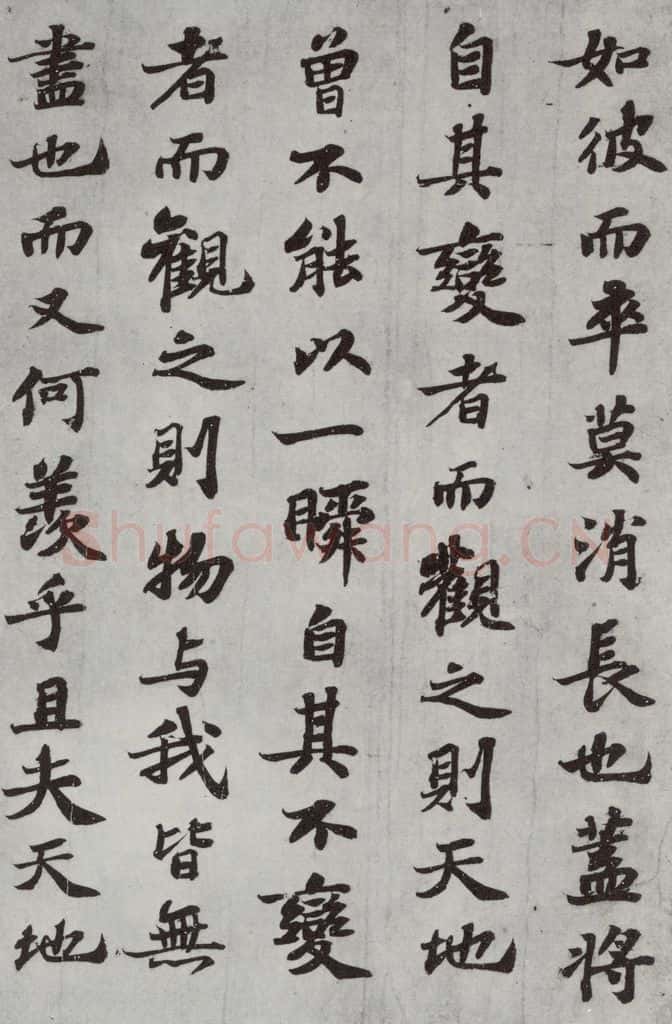 如彼而卒莫消長也蓋將
自其變者而觀之則天地
曾不能以一瞬自其不變
者而觀之則物与我皆無
盡也而又何羨乎且夫天地
Shufawang.CN